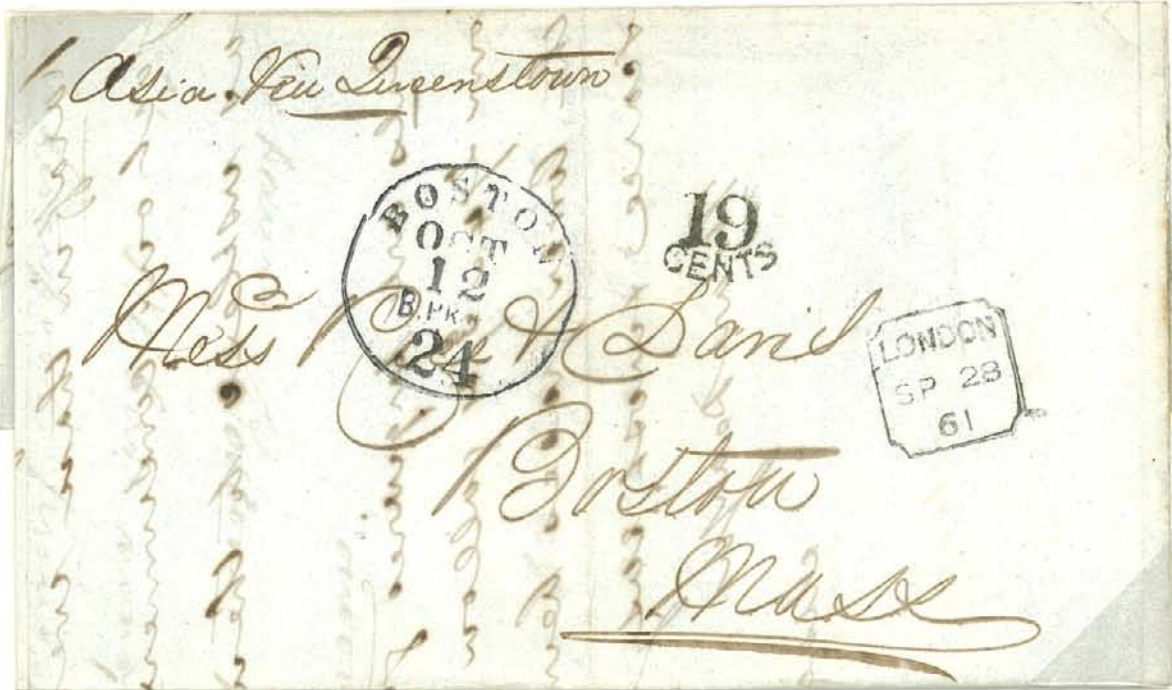 Asia. Via Queenstown
BOSTON
OCT
12
B. PKT
24
19
CENTS
Mess & Davis
LONDON
SP 28
61
Boston
Mass